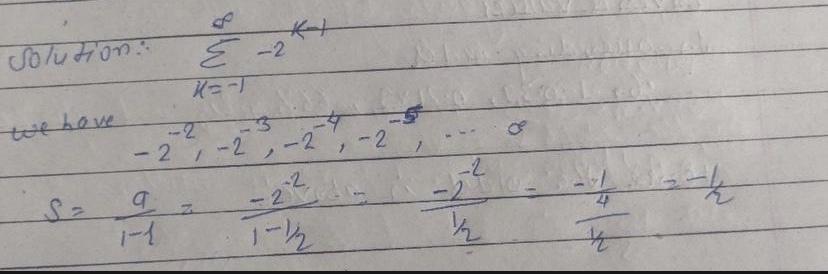 Solution:- ∞ Σ K=-1 -2^{K-1}
we have
-2^{-2}, -2^{-3}, -2^{-4}, -2^{-5}, ... ∞
S = a/(1-1) = -2^{-2}/(1-1/2) = -2^{-2}/(1/2) = (-1/4)/(1/2) = -1/2